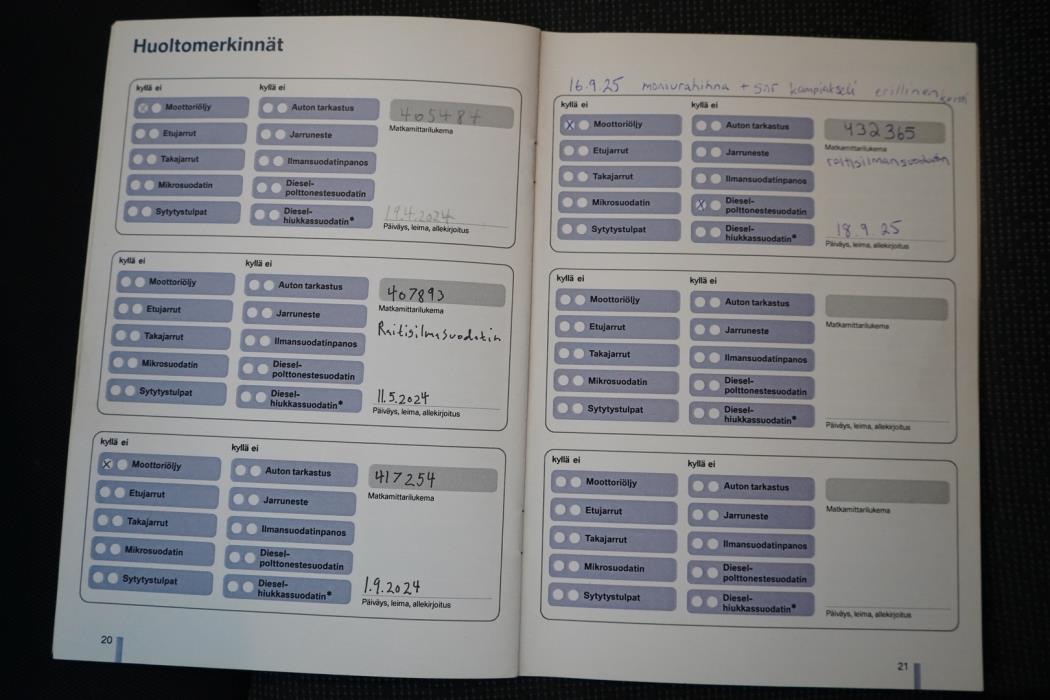 Huoltomerkinnät
kyllä ei kyllä ei
X Moottoriöljy Auton tarkastus 405487
Matkamittarilukema
Etujarrut Jarruneste
Takajarrut Ilmansuodatinpanos
Mikrosuodatin Diesel-
polttonestesuodatin
Sytytystulpat Diesel-
hiukkassuodatin*
19.4.2024
Päiväys, leima, allekirjoitus
kyllä ei kyllä ei
Moottoriöljy Auton tarkastus 407893
Matkamittarilukema
Etujarrut Jarruneste
Raitisilmasuodatin
Takajarrut Ilmansuodatinpanos
Mikrosuodatin Diesel-
polttonestesuodatin
Sytytystulpat Diesel-
hiukkassuodatin*
11.5.2024
Päiväys, leima, allekirjoitus
kyllä ei kyllä ei
X Moottoriöljy Auton tarkastus 417254
Matkamittarilukema
Etujarrut Jarruneste
Takajarrut Ilmansuodatinpanos
Mikrosuodatin Diesel-
polttonestesuodatin
Sytytystulpat Diesel-
hiukkassuodatin*
1.9.2024
Päiväys, leima, allekirjoitus
20
16.9.25 moniurahihna + erillinen
kyllä ei kyllä ei
X Moottoriöljy Auton tarkastus 432365
Matkamittarilukema
Etujarrut Jarruneste
raitisilmansuodatin
Takajarrut Ilmansuodatinpanos
Mikrosuodatin X Diesel-
polttonestesuodatin
Sytytystulpat Diesel-
hiukkassuodatin*
18.9.25
Päiväys, leima, allekirjoitus
kyllä ei kyllä ei
Moottoriöljy Auton tarkastus
Matkamittarilukema
Etujarrut Jarruneste
Takajarrut Ilmansuodatinpanos
Mikrosuodatin Diesel-
polttonestesuodatin
Sytytystulpat Diesel-
hiukkassuodatin*
Päiväys, leima, allekirjoitus
kyllä ei kyllä ei
Moottoriöljy Auton tarkastus
Matkamittarilukema
Etujarrut Jarruneste
Takajarrut Ilmansuodatinpanos
Mikrosuodatin Diesel-
polttonestesuodatin
Sytytystulpat Diesel-
hiukkassuodatin*
Päiväys, leima, allekirjoitus
21